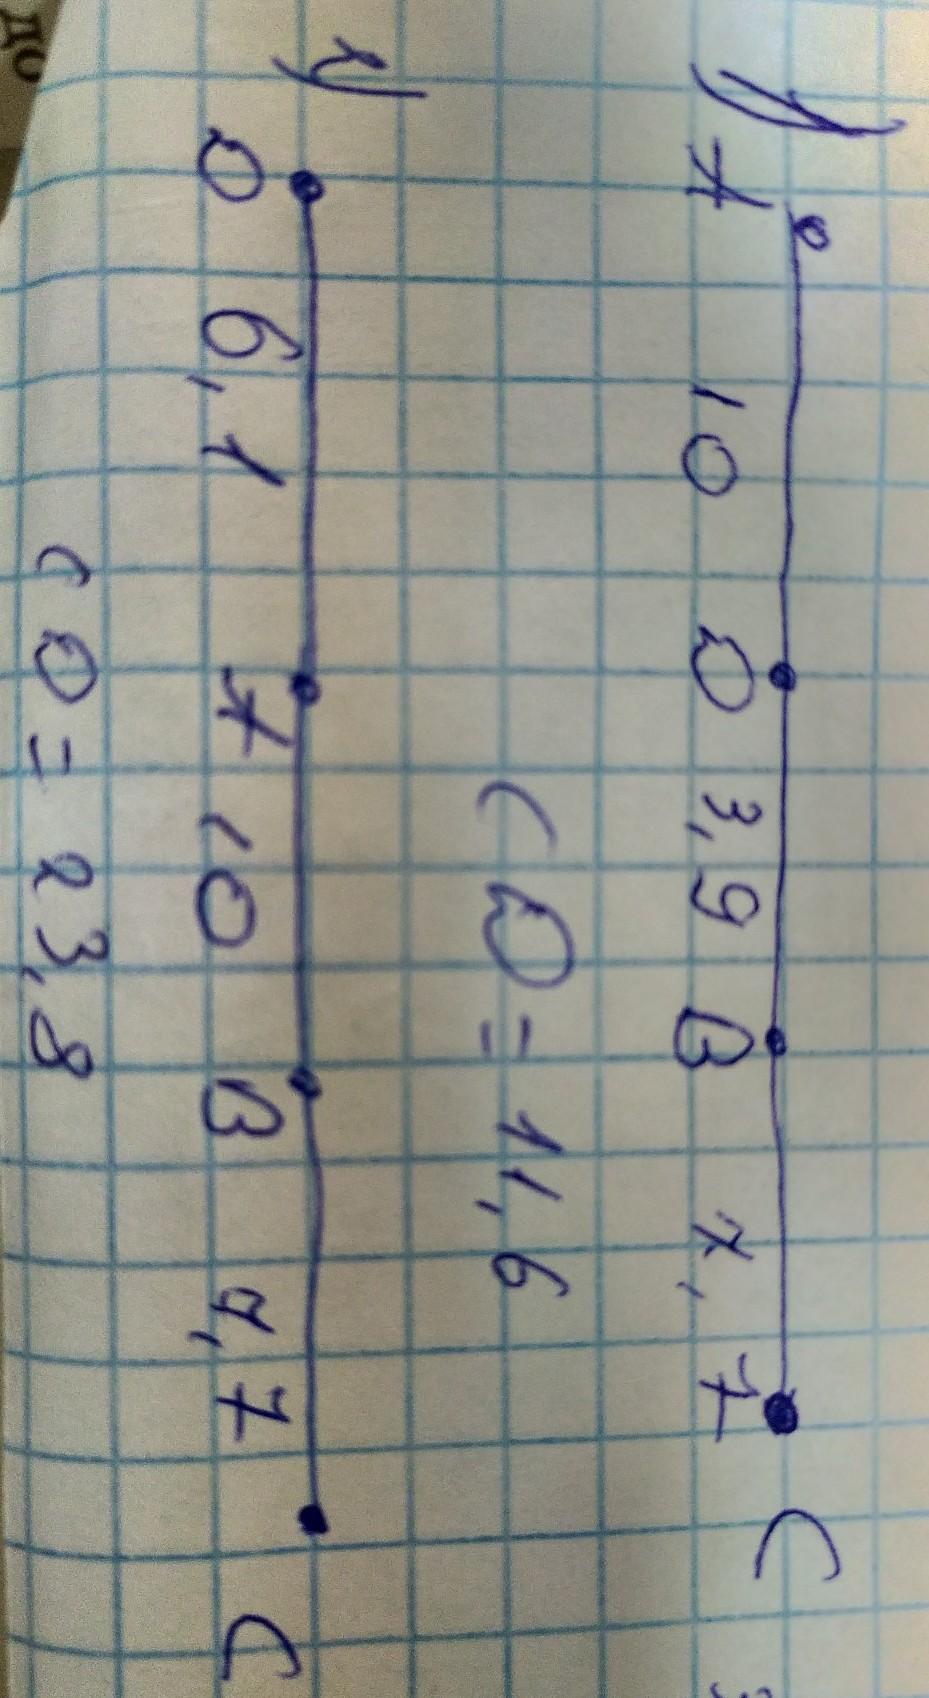 1) A 10 D 3,9 B 7,7 C
CD = 11,6
2) D 6,1 A 10 B 7,7 C
CD = 23,8
до